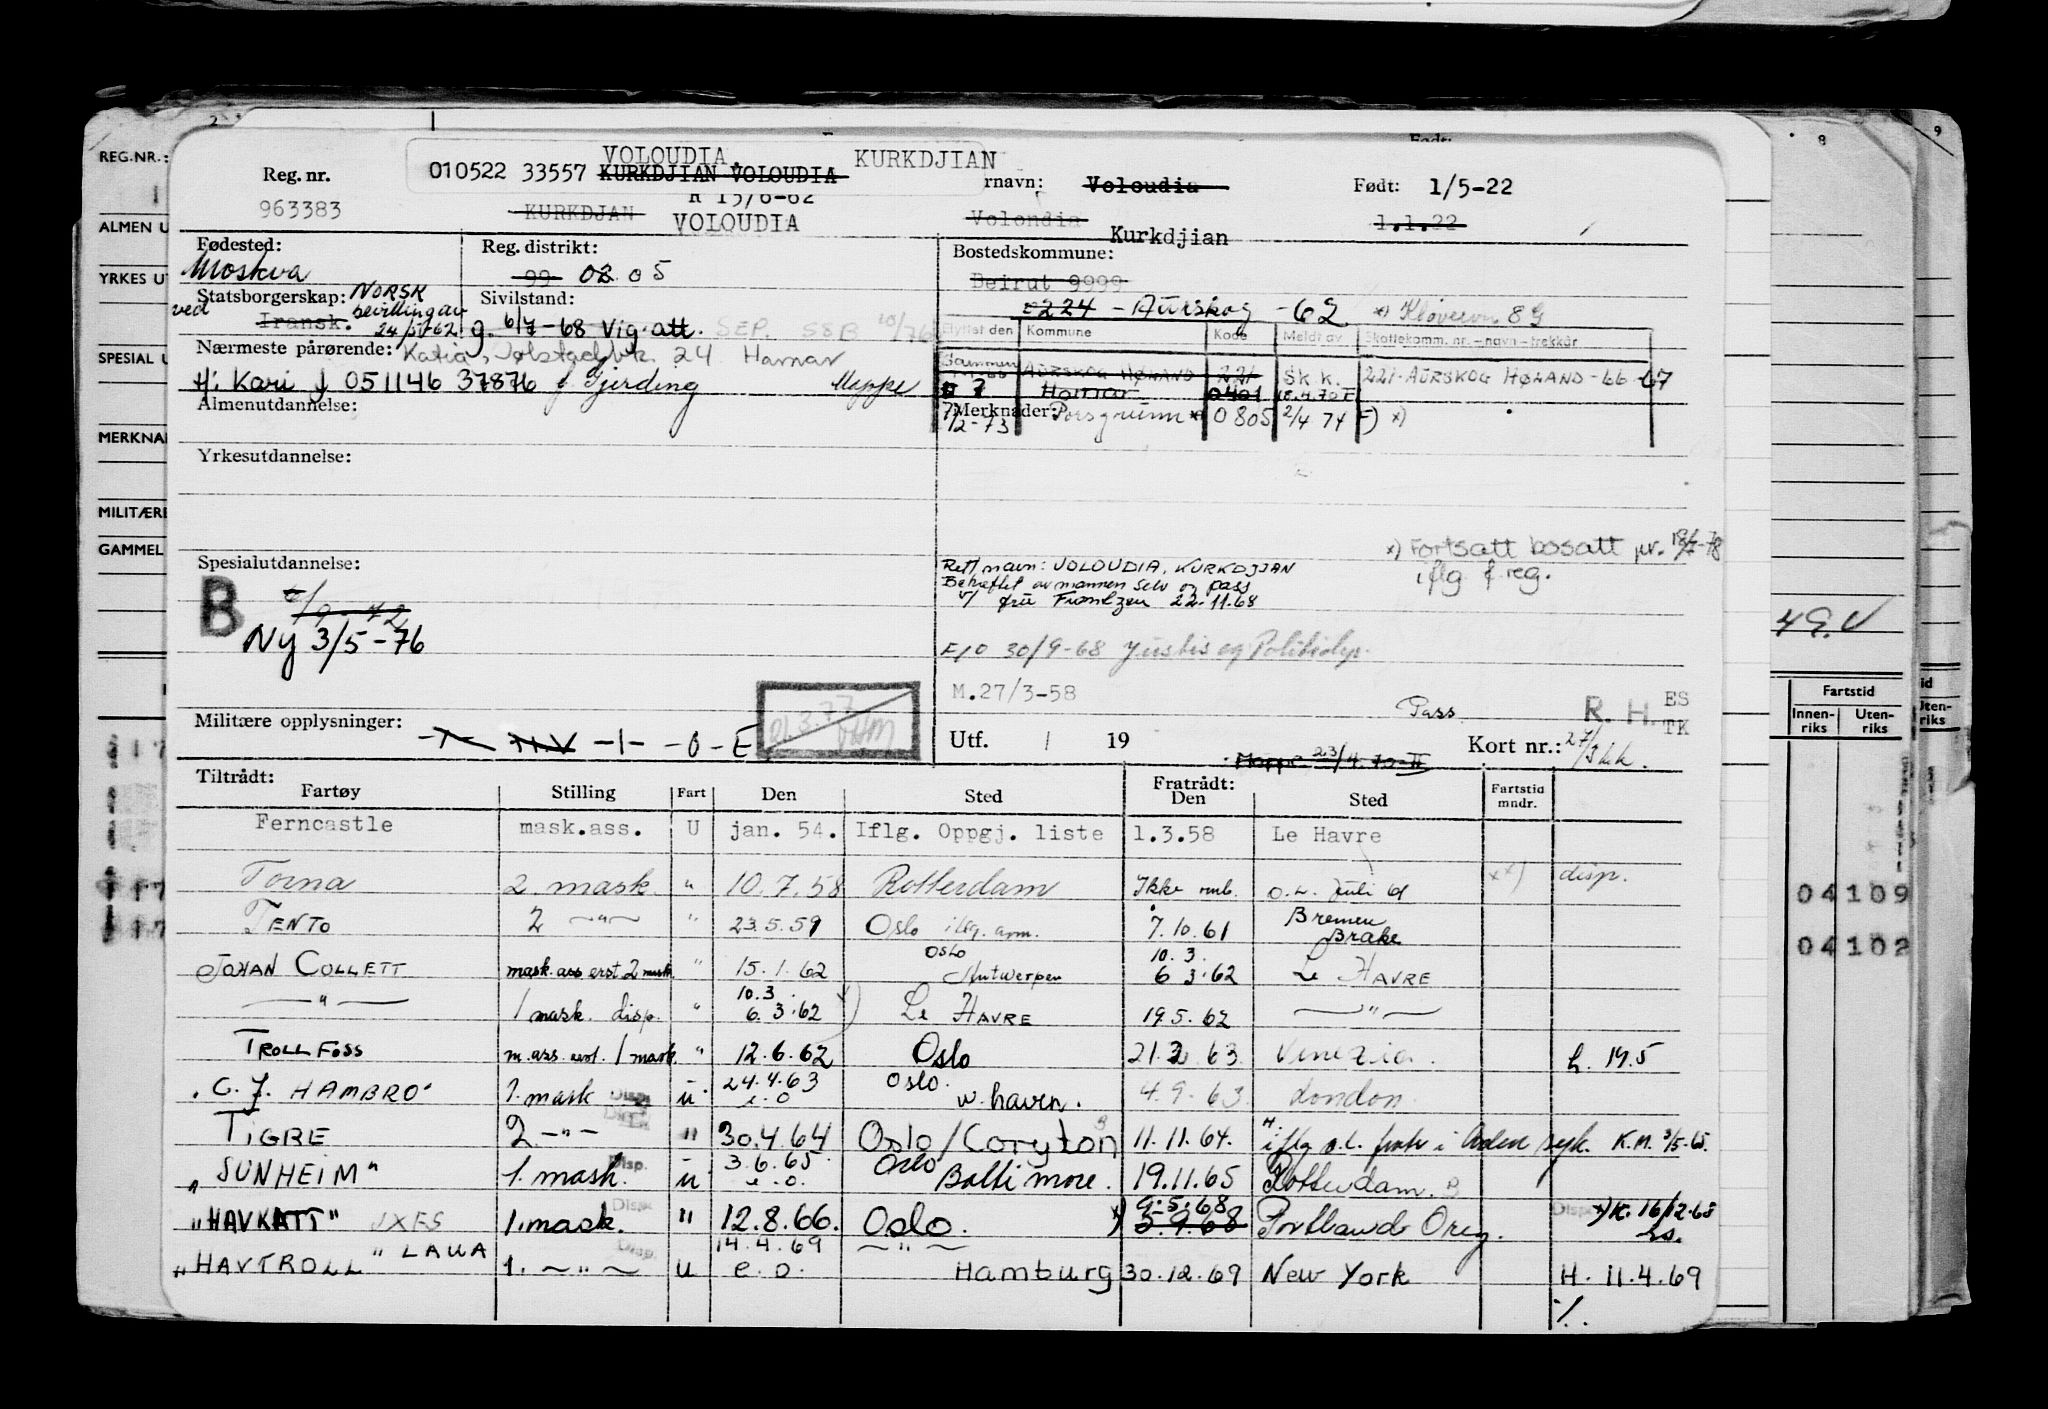 2
9
8
REG.NR.:
ALMEN U
YRKES U
SPESIAL U
MERKNA
MILITÆRE
GAMMEL
Reg. nr.
963383
VOLOUDIA, KURKDJIAN
010522 33557 KURKDJIAN VOLOUDIA
R 15/6-62
KURKDJAN
VOLOUDIA
rnavn: Voloudia
Volondia
Kurkdjian
Født: 1/5-22
1.1.22
Fødested:
Moskva
Reg. distrikt:
99 02 05
Bostedskommune:
Beirut 9999
0224 - Aurskog -62 x) Kløvervn 8G
Statsborgerskap: NORSK
ved bevilling av
Iransk. 24/5-62
Sivilstand:
g. 6/7-68 Vig.att. SEP. SEB
Nærmeste pårørende: Katia, 24 Hamar
H: Kari f 051146 37876 f. Gjerding Mappe
Flyttet den Kommune Kode Meldt av Skattekomm. nr. - navn - trekkår
AURSKOG HØLAND 221 Sk.k. 221-AURSKOG HØLAND-66-67
Hamar 0401
Merknader:
/2-73 Porsgrunn x) 0805 2/4 74 F) x)
Almenutdannelse:
Yrkesutdannelse:
x) Fortsatt bosatt pr.
iflg f.reg.
Spesialutdannelse:
B
/9-72
Ny 3/5-76
Rett navn: VOLOUDIA, KURKDJIAN
Bekreftet av mannen selv og pass
v/ fru Frantzen 22.11.68
30/9-68 Justis og
M.27/3-58
Militære opplysninger:
-1- -0-E
Pass
R. H. ES
TK
Utf. / 19
Mappe 23/4.70-II
Kort nr.: 27/
Tiltrådt:
Fartøy Stilling Fart Den Sted Fratrådt: Den Sted Fartstid mndr.
Ferncastle mask.ass. U jan. 54. Iflg. Oppgj. liste 1.3.58 Le Havre
Torna 2. mask. " 10.7.58 Rotterdam Ikke mb. o.l. juli 61 xx) disp.
TENTO 2 -"- " 23.5.59 Oslo iflg. 7.10.61 Bremen
Brake
JOHAN COLLETT mask.ass erst 2 mask. " 15.1.62 Oslo
Antwerpen 10.3.
6 3.62 Le HAVRE
-"- 1 mask. disp. " 10.3.
6.3.62 x) Le HAVRE 19.5.62 -"-
TROLLFOSS m.ass. erst. 1 mask. " 12.6.62 Oslo 21.2.63 Venezia. h. 19.5
"C.J. HAMBRO" 1. mask Disp. u. 24.4.63
e.o Oslo.
w.haven. 4.9.63 London
TIGRE 2.-"- " 30.4.64 Oslo/Coryton 11.11.64. iflg o.l. fratr i Aden syk. K.M. 3/5-65.
"SUNHEIM" 1. mask. Disp. u 3.6.65
e.o. Oslo
Baltimore. 19.11.65 Rotterdam.
"HAVKATT" JXFS 1. mask. Disp. " 12.8.66. Oslo. x) 9.5.68
5.9.68 Portland Oreg. Disp. x) K. 16/12.68
"HAVTROLL" LAUA 1. -"- Disp. u 14.4.69
e.o. -"-
Hamburg 30.12.69 New York H. 11.4.69
./.
Fartstid
Innen-
riks
Uten-
riks
04109
04102
id
Uten-
riks